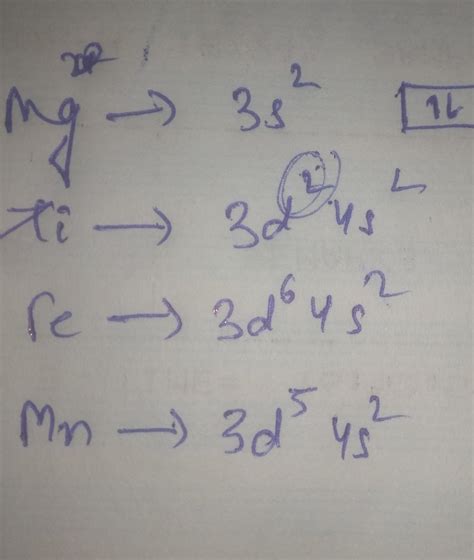 Mg → 3s² 1L
Ti → 3d² 4s²
Fe → 3d⁶ 4s²
Mn → 3d⁵ 4s²